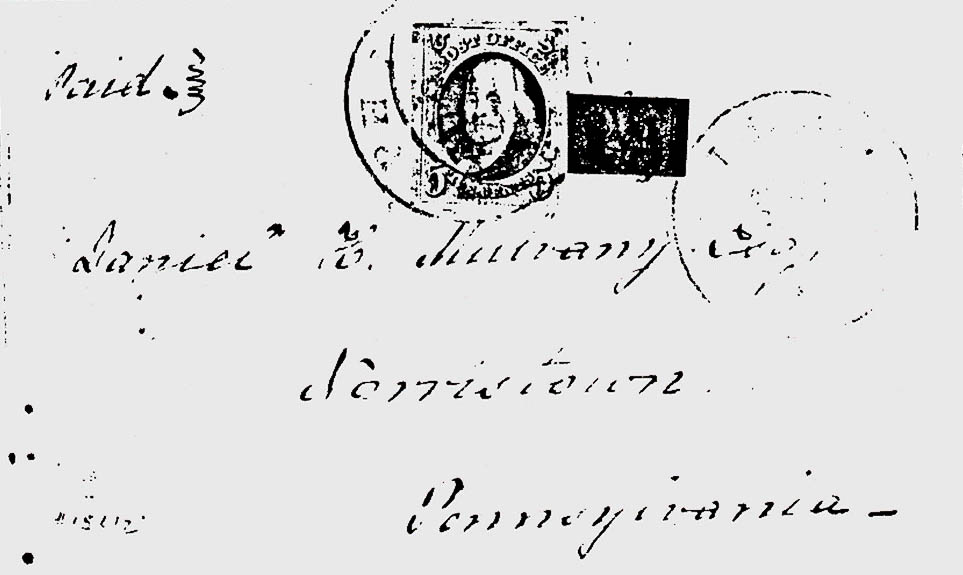 Paid.
POST OFFICE
Daniel H. Mulvany Esq,
Norristown
Pennsylvania -